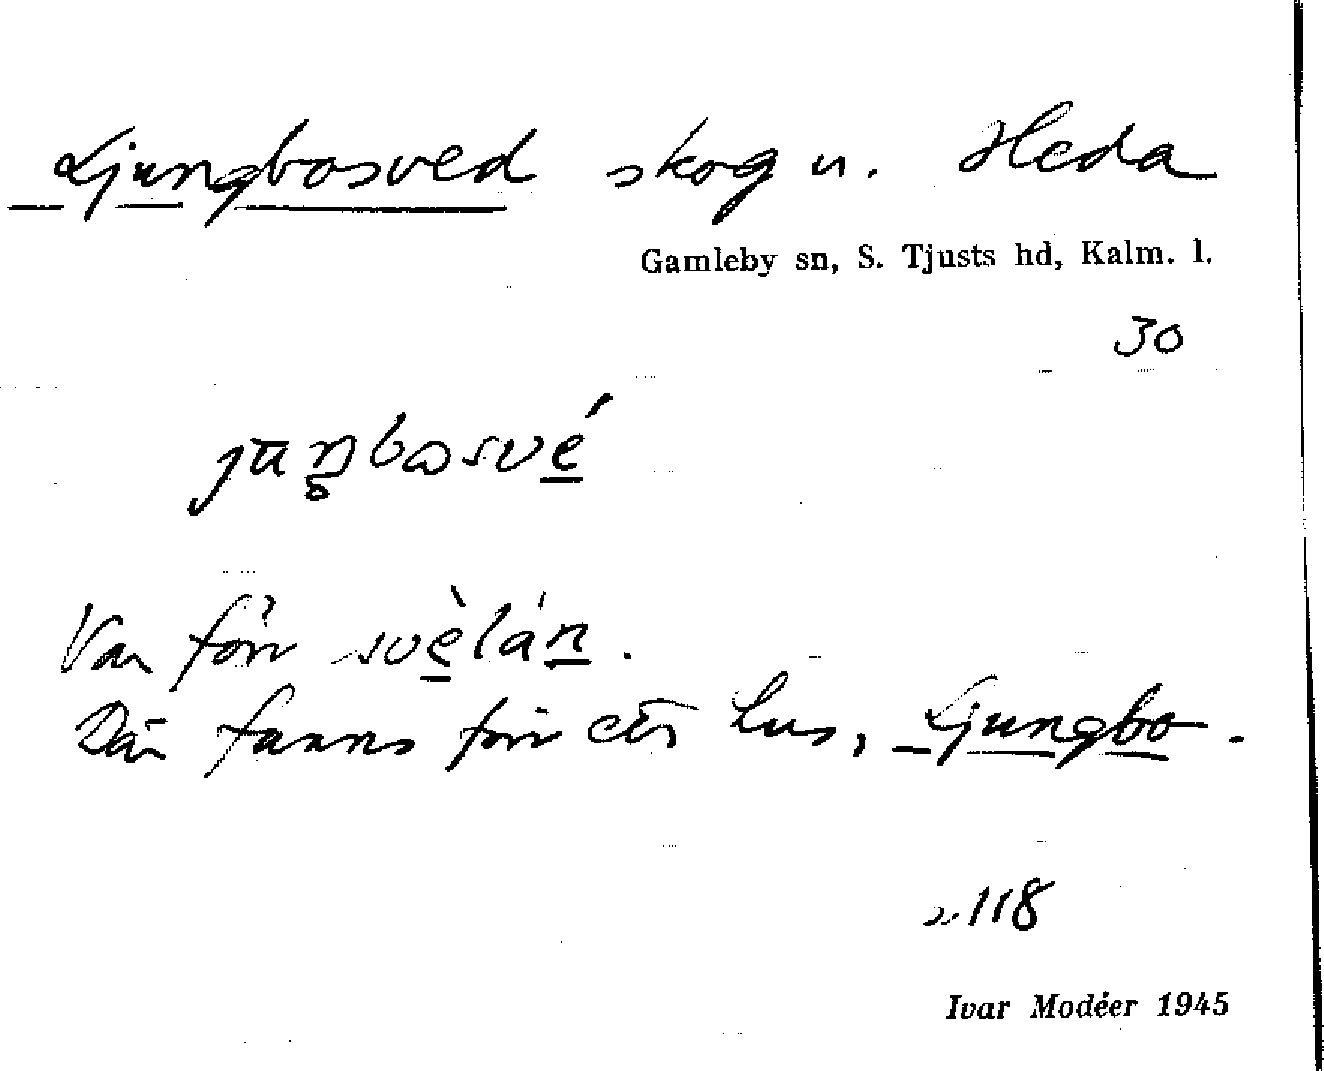 Ljungbosved skog u. Heda
Gamleby sn, S. Tjusts hd, Kalm. l.
30
juŋbosvé
Var förr svèlán.
Där fanns förr ett hus, Ljungbo.
118
Ivar Modéer 1945